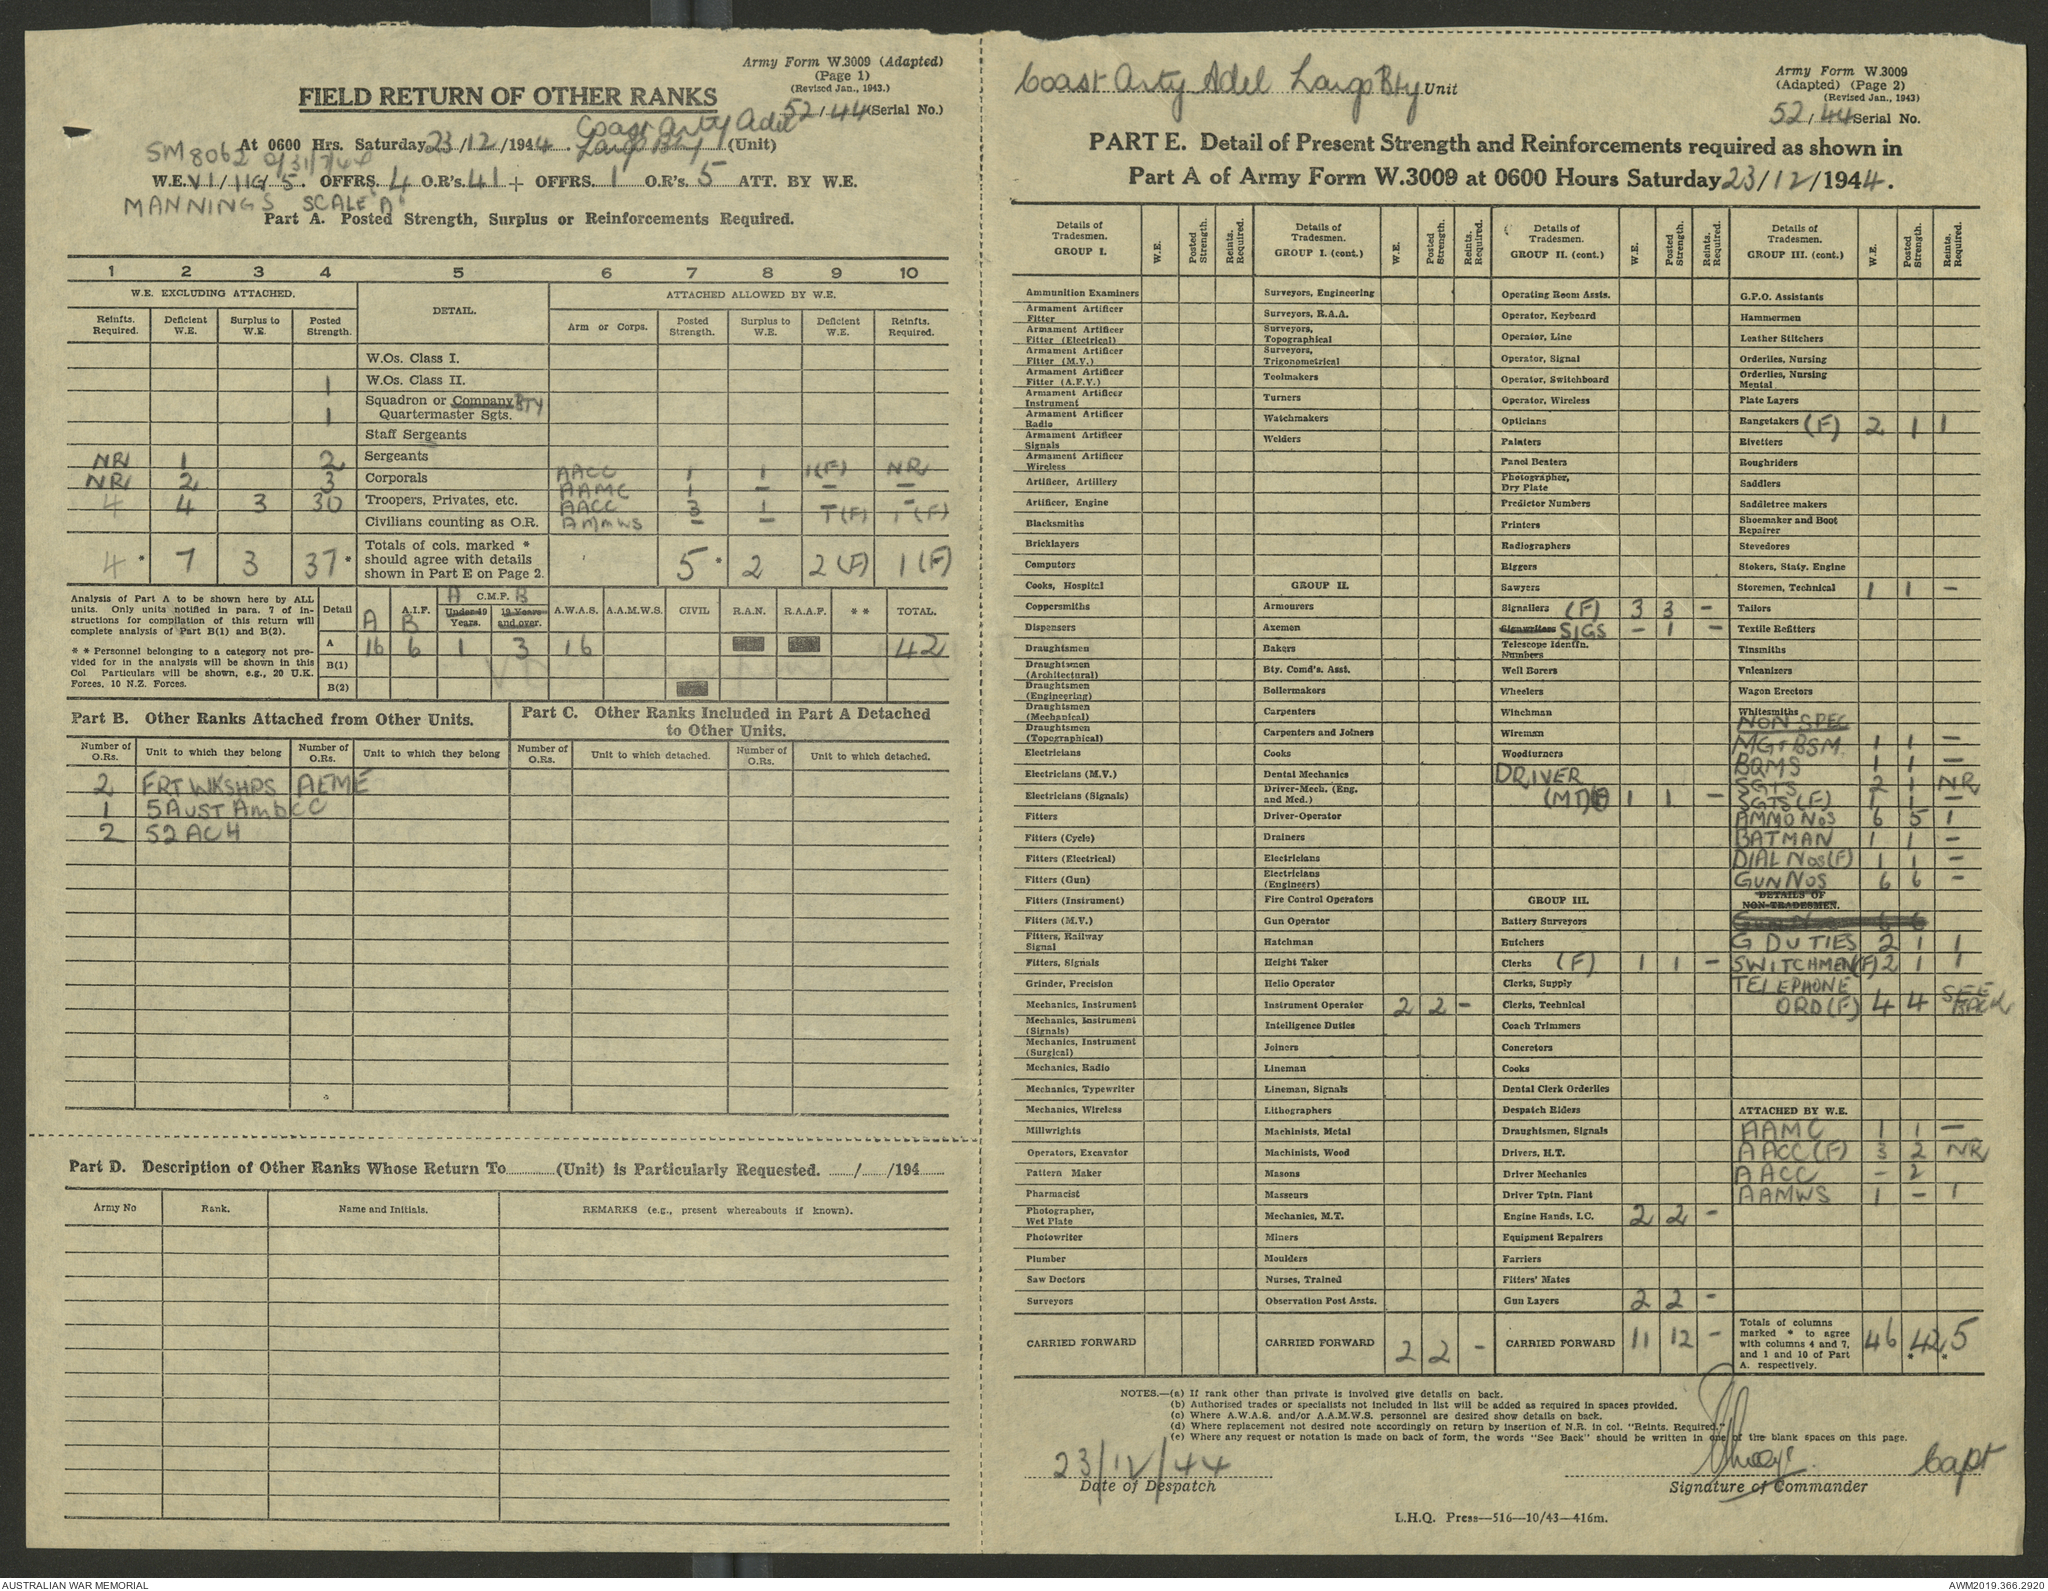 Army Form W.3009 (Adapted)
(Page 1)
(Revised Jan., 1943.)
FIELD RETURN OF OTHER RANKS
52/44 (Serial No.)
Coast Arty Adel
At 0600 Hrs. Saturday 23/12/1944. Largs Bty (Unit)
SM8062 d/31/7/44
W.E. VI/11G/5. OFFRS. 4 O.R's. 41 + OFFRS. 1 O.R's. 5 ATT. BY W.E.
MANNINGS SCALE "A"
Part A. Posted Strength, Surplus or Reinforcements Required.
1 2 3 4 5 6 7 8 9 10
W.E. EXCLUDING ATTACHED. DETAIL. ATTACHED ALLOWED BY W.E.
Reinfts. Required. Deficient W.E. Surplus to W.E. Posted Strength. Arm or Corps. Posted Strength. Surplus to W.E. Deficient W.E. Reinfts. Required.
W.Os. Class I.
1 W.Os. Class II.
1 Squadron or Company BTY Quartermaster Sgts.
Staff Sergeants
NR 1 2 Sergeants
NR 2 3 Corporals AACC 1 1 1(F) NR
AAMC 1 - - -
4 4 3 30 Troopers, Privates, etc. AACC 3 1 - -
Civilians counting as O.R. AAMWS - - 1(F) 1(F)
4* 7 3 37* Totals of cols. marked * should agree with details shown in Part E on Page 2. 5* 2 2(F) 1(F)
Analysis of Part A to be shown here by ALL units. Only units notified in para. 7 of instructions for compilation of this return will complete analysis of Part B(1) and B(2).
* * Personnel belonging to a category not provided for in the analysis will be shown in this Col Particulars will be shown, e.g., 20 U.K. Forces, 10 N.Z. Forces.
Detail A A.I.F. B A C.M.F. B Under 19 Years. 19 Years and over. A.W.A.S. A.A.M.W.S. CIVIL R.A.N. R.A.A.F. * * TOTAL.
A 16 6 1 3 16 42
B(1)
B(2)
Part B. Other Ranks Attached from Other Units.
Part C. Other Ranks Included in Part A Detached to Other Units.
Number of O.Rs. Unit to which they belong Number of O.Rs. Unit to which they belong Number of O.Rs. Unit to which detached. Number of O.Rs. Unit to which detached.
2 FRT WKSHPS AEME
1 5 AUST Amb CC
2 52 ACH
Part D. Description of Other Ranks Whose Return To (Unit) is Particularly Requested. / /194
Army No Rank. Name and Initials. REMARKS (e.g., present whereabouts if known).
Coast Arty Adel Largs Bty Unit
Army Form W.3009
(Adapted) (Page 2)
(Revised Jan., 1943)
52/44 Serial No.
PART E. Detail of Present Strength and Reinforcements required as shown in
Part A of Army Form W.3009 at 0600 Hours Saturday 23/12/1944.
Details of Tradesmen. GROUP I. W.E. Posted Strength. Reints. Required.
Ammunition Examiners
Armament Artificer Fitter
Armament Artificer Fitter (Electrical)
Armament Artificer Fitter (M.V.)
Armament Artificer Fitter (A.F.V.)
Armament Artificer Instrument
Armament Artificer Radio
Armament Artificer Signals
Armament Artificer Wireless
Artificer, Artillery
Artificer, Engine
Blacksmiths
Bricklayers
Computors
Cooks, Hospital
Coppersmiths
Dispensers
Draughtsmen
Draughtsmen (Architectural)
Draughtsmen (Engineering)
Draughtsmen (Mechanical)
Draughtsmen (Topographical)
Electricians
Electricians (M.V.)
Electricians (Signals)
Fitters
Fitters (Cycle)
Fitters (Electrical)
Fitters (Gun)
Fitters (Instrument)
Fitters (M.V.)
Fitters, Railway Signal
Fitters, Signals
Grinder, Precision
Mechanics, Instrument
Mechanics, Instrument (Signals)
Mechanics, Instrument (Surgical)
Mechanics, Radio
Mechanics, Typewriter
Mechanics, Wireless
Millwrights
Operators, Excavator
Pattern Maker
Pharmacist
Photographer, Wet Plate
Photowriter
Plumber
Saw Doctors
Surveyors
CARRIED FORWARD
Details of Tradesmen. GROUP I. (cont.) W.E. Posted Strength. Reints. Required.
Surveyors, Engineering
Surveyors, R.A.A.
Surveyors, Topographical
Surveyors, Trigonometrical
Toolmakers
Turners
Watchmakers
Welders
GROUP II.
Armourers
Axemen
Bakers
Bty. Comd's. Asst.
Boilermakers
Carpenters
Carpenters and Joiners
Cooks
Dental Mechanics
Driver-Mech. (Eng. and Med.)
Driver-Operator
Drainers
Electricians
Electricians (Engineers)
Fire Control Operators
Gun Operator
Hatchman
Height Taker
Helio Operator
Instrument Operator 2 2 -
Intelligence Duties
Joiners
Lineman
Lineman, Signals
Lithographers
Machinists, Metal
Machinists, Wood
Masons
Masseurs
Mechanics, M.T.
Miners
Moulders
Nurses, Trained
Observation Post Assts.
CARRIED FORWARD 2 2 -
Details of Tradesmen. GROUP II. (cont.) W.E. Posted Strength. Reints. Required.
Operating Room Assts.
Operator, Keyboard
Operator, Line
Operator, Signal
Operator, Switchboard
Operator, Wireless
Opticians
Painters
Panel Beaters
Photographer, Dry Plate
Predictor Numbers
Printers
Radiographers
Riggers
Sawyers
Signallers (F) 3 3 -
Signwriters SIGS - 1 -
Telescope Identfn. Numbers
Well Borers
Wheelers
Winchman
Wireman
Woodturners
DRIVER
(MT) 1 1 -
GROUP III.
Battery Surveyors
Butchers
Clerks (F) 1 1 -
Clerks, Supply
Clerks, Technical
Coach Trimmers
Concretors
Cooks
Dental Clerk Orderlies
Despatch Riders
Draughtsmen, Signals
Drivers, H.T.
Driver Mechanics
Driver Tptn. Plant
Engine Hands, I.C. 2 2 -
Equipment Repairers
Farriers
Fitters' Mates
Gun Layers 2 2 -
CARRIED FORWARD 11 12 -
Details of Tradesmen. GROUP III. (cont.) W.E. Posted Strength. Reints Required.
G.P.O. Assistants
Hammermen
Leather Stitchers
Orderlies, Nursing
Orderlies, Nursing Mental
Plate Layers
Rangetakers (F) 2 1 1
Rivetters
Roughriders
Saddlers
Saddletree makers
Shoemaker and Boot Repairer
Stevedores
Stokers, Staty. Engine
Storemen, Technical 1 1 -
Tailors
Textile Refitters
Tinsmiths
Vulcanizers
Wagon Erectors
Whitesmiths
NON SPEC
MGr BSM 1 1 -
BQMS 1 1 -
SGTS 2 1 NR
SGTS (F) 1 1 -
AMMO NOS 6 5 1
BATMAN 1 1 -
DIAL NOS (F) 1 1 -
GUN NOS 6 6 -
DETAILS OF NON-TRADESMEN.
Gun Nos 6 6
G DUTIES 2 1 1
SWITCHMEN (F) 2 1 1
TELEPHONE
ORD (F) 4 4 SEE BACK
ATTACHED BY W.E.
AAMC 1 1 -
AACC (F) 3 2 NR
AACC - 2
AAMWS 1 - 1
Totals of columns marked * to agree with columns 4 and 7, and 1 and 10 of Part A. respectively. 46 42* 5*
NOTES.—(a) If rank other than private is involved give details on back.
(b) Authorised trades or specialists not included in list will be added as required in spaces provided.
(c) Where A.W.A.S. and/or A.A.M.W.S. personnel are desired show details on back.
(d) Where replacement not desired note accordingly on return by insertion of N.R. in col. "Reints. Required."
(e) Where any request or notation is made on back of form, the words "See Back" should be written in one of the blank spaces on this page.
23/12/44
Capt
Date of Despatch
Signature of Commander
L.H.Q. Press—516—10/43—416m.
AUSTRALIAN WAR MEMORIAL
AWM2019.366.2920